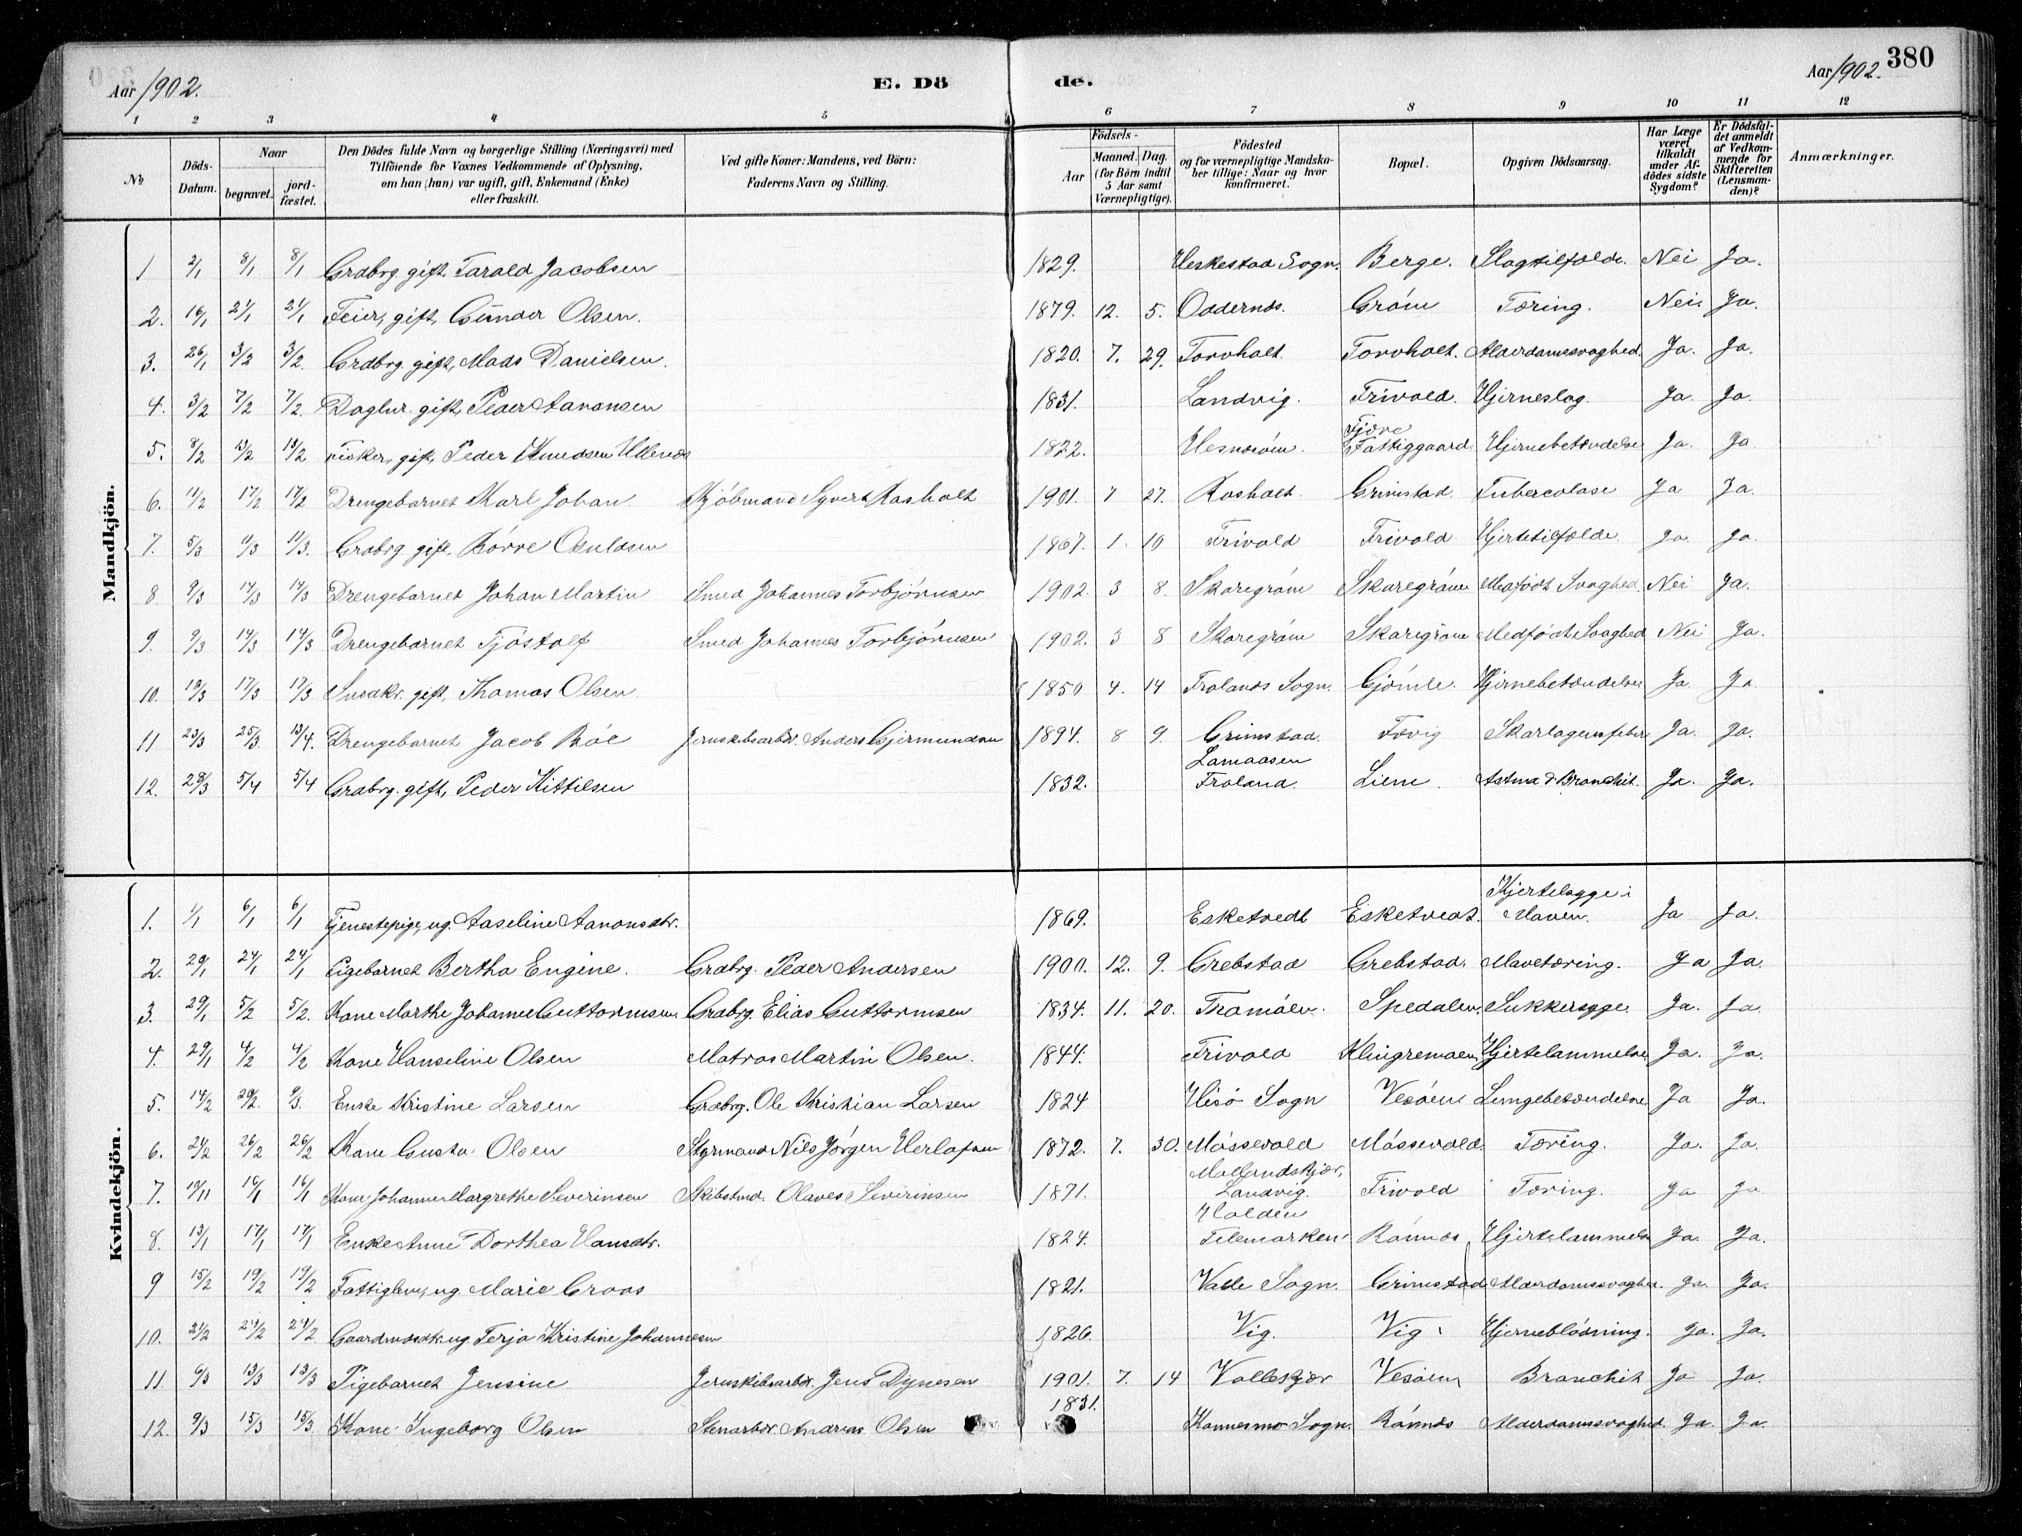 Aar 1902.
E. Dö
de.
Aar 1902.
380
1 2 3 4 5 6 7 8 9 10 11 12
No
Döds-Datum.
Naar
begravet.
jord-fæstet.
Den Dödes fulde Navn og borgerlige Stilling (Næringsvei) med
Tilföiende for Voxnes Vedkommende af Oplysning,
om han (hun) var ugift, gift, Enkemand (Enke)
eller fraskilt.
Ved gifte Koner: Mandens, ved Börn:
Faderens Navn og Stilling.
Födsels-
Aar
Maaned. Dag.
(for Börn indtil
5 Aar samt
Værnepligtige).
Födested
og for værnepligtige Mandska-
ber tillige: Naar og hvor
konfirmeret.
Bopæl.
Opgiven Dödsaarsag.
Har Læge
været
tilkaldt
under Af-
dödes sidste
Sygdom?
Er Dödsfal-
det anmeldt
af Vedkom-
mende for
Skifteretten
(Lensman-
den)?
Anmærkninger.
Mandkjön.
1 2/1 8/1 8/1 Grdbrg. gift, Tarald Jacobsen 1829. Heskestad Sogn. Berge. Slagtilfælde. Nei Ja.
2. 16/1 21/1 21/1 Feier, gift, Gunder Olsen. 1879. 12. 5. Oddernes. Gróm Tæring. Nei. Ja.
3. 26/1 3/2 3/2. Grdbrg. gift, Mads Danielsen. 1820. 7. 29. Torvholt. Torvholt. Alderdomssvaghed. Ja. Ja.
4. 3/2 7/2 7/2. Daglnr. gift, Peder Aanonsen 1831. Landvig. Frivold. Hjerneslag. Ja. Ja.
5. 8/2 13/2 13/2 Fisker, gift, Peder Knudsen 1822. Hesnesóen. Fjære Fattiggaard. Hjernebetændelse Ja. Ja
6. 11/2 17/2 17/2 Drengebarnet Karl Johan. Kjöbmand Syvert Rosholt 1901. 7 27. Rosholt. Grimstad. Tuberculose Ja Ja.
7. 5/3 11/3 11/3. Grdbrg. gift, Börre Osuldsen 1867. 1. 10 Frivold Frivold. Hjertetilfælde Ja. Ja.
8. 9/3 14/3 14/3 Drengebarnet Johan Martin Smed Johannes Torbjörnsen 1902. 3 8. Skaregróm Skaregróm Medfödt Svaghed. Nei Ja.
9. 9/3 14/3 14/3 Drengebarnet Tjöstolf Smed Johannes Torbjörnsen 1902. 3 8 Skaregróm Skaregróm Medfödt Svaghed Nei Ja.
10. 13/3 17/3 17/3 Snedkr. gift, Thomas Olsen 1850 4. 14 Frolands Sogn. Gjómle. Hjernebetændelse Ja. Ja
11 23/3 25/3. 13/4. Drengebarnet Jacob Róe Jernskibsarbdr. Anders Gjermundsen 1894. 8 9. Grimstad. Fevig Skarlagensfeber Ja. Ja.
12. 28/3 5/4 5/4 Grdbrg. gift, Peder Kittilsen 1832. Lamaasen Froland. Liene. Astma & Bronchit. Ja. Ja.
Kvindekjön.
1. 1/1 6/1 6/1 Tjenestepige, ug. Aaseline Aanonsdtr. 1869. Esketvedt Esketvedt. Kjertelsyge i Maven. Ja Ja.
2. 20/1 24/1 24/1 Pigebarnet Bertha Engine. Grdbrg. Peder Andersen 1900. 12. 9. Grebstad Grebstad. Mavetæring. Ja Ja.
3. 29/1 5/2 5/2. Kone Marthe Johanne Guttormsen. Grdbrg. Elias Guttormsen 1834. 11. 20. Tromóen. Spedalen. Sukkersyge. Ja. Ja.
4. 29/1 4/2 4/2 Kone Hanseline Olsen Matros Martin Olsen. 1844. Frivold Klingremoen. Hjertelammelse Ja. Ja.
5. 14/2 20/2. 9/3. Enke Kristine Larsen Grdbrg. Ole Kristian Larsen 1824 Hisö Sogn Vesöen Lungebetændelse Ja Ja.
6. 21/2 26/2 26/2 Kone Gusta Olsen Styrmand Nils Jörgen Herlofsen 1872. 7. 30. Móssevold Móssevold. Tæring. Ja. Ja.
7. 10/11 16/1 16/1 Kone Johanne Margrethe Severinsen Skibstmd. Olaves Severinsen 1871. Mollandskjær, Landvig. Frivold Tæring. Ja Ja.
8. 13/1 17/1 17/1 Enke Anne Dorthea Hansdtr. 1824. Holden Telemarken Rónnes Hjertelammelse Ja. Ja.
9 15/2 19/2 19/2 Fattiglem, ug Marie Groos 1821. Valle Sogn. Grimstad Alderdomssvaghed. Ja. Ja.
10. 21/2 24/2 24/2 Gaardmdsdtr. ug Terjo Kristine Johannesen 1826. Vig. Vig. Hjerneblódning. Ja. Ja.
11. 6/3 13/3 13/3 Pigebarnet Jensine Jernskibsarbdr. Jens Dynesen 1901. 7. 14 Vollekjær Vesóen Bronchit Ja Ja.
12. 9/3 15/3 15/3 Kone Ingeborg Olsen Stenarbdr. Andreas Olsen 1831. Kannesmo Sogn. Rónnes Alderdomssvaghed. Ja. Ja.